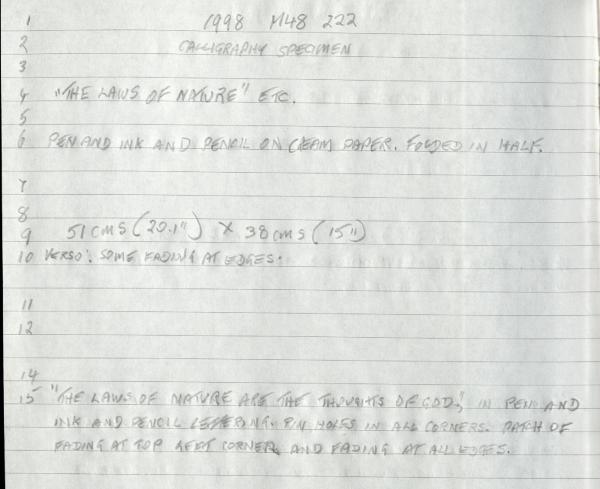 1 1998 M48 222
2 CALLIGRAPHY SPECIMEN
3
4 "THE LAWS OF NATURE" ETC.
5
6 PEN AND INK AND PENCIL ON CREAM PAPER. FOLDED IN HALF.
7
8
9 51 CMS (20.1") X 38 CMS (15")
10 VERSO: SOME FADING AT EDGES.
11
12
14
15 "THE LAWS OF NATURE ARE THE THOUGHTS OF GOD", IN PEN AND
INK AND PENCIL LETTERING. PIN HOLES IN ALL CORNERS. PATCH OF
FADING AT TOP LEFT CORNER, AND FADING AT ALL EDGES.